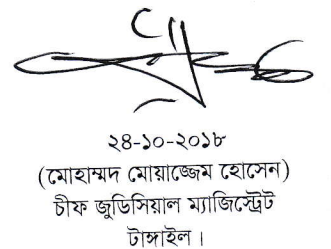 ২৪-১০-২০১৮
(মোহাম্মদ মোয়াজ্জেম হোসেন)
চীফ জুডিসিয়াল ম্যাজিস্ট্রেট
টাঙ্গাইল।